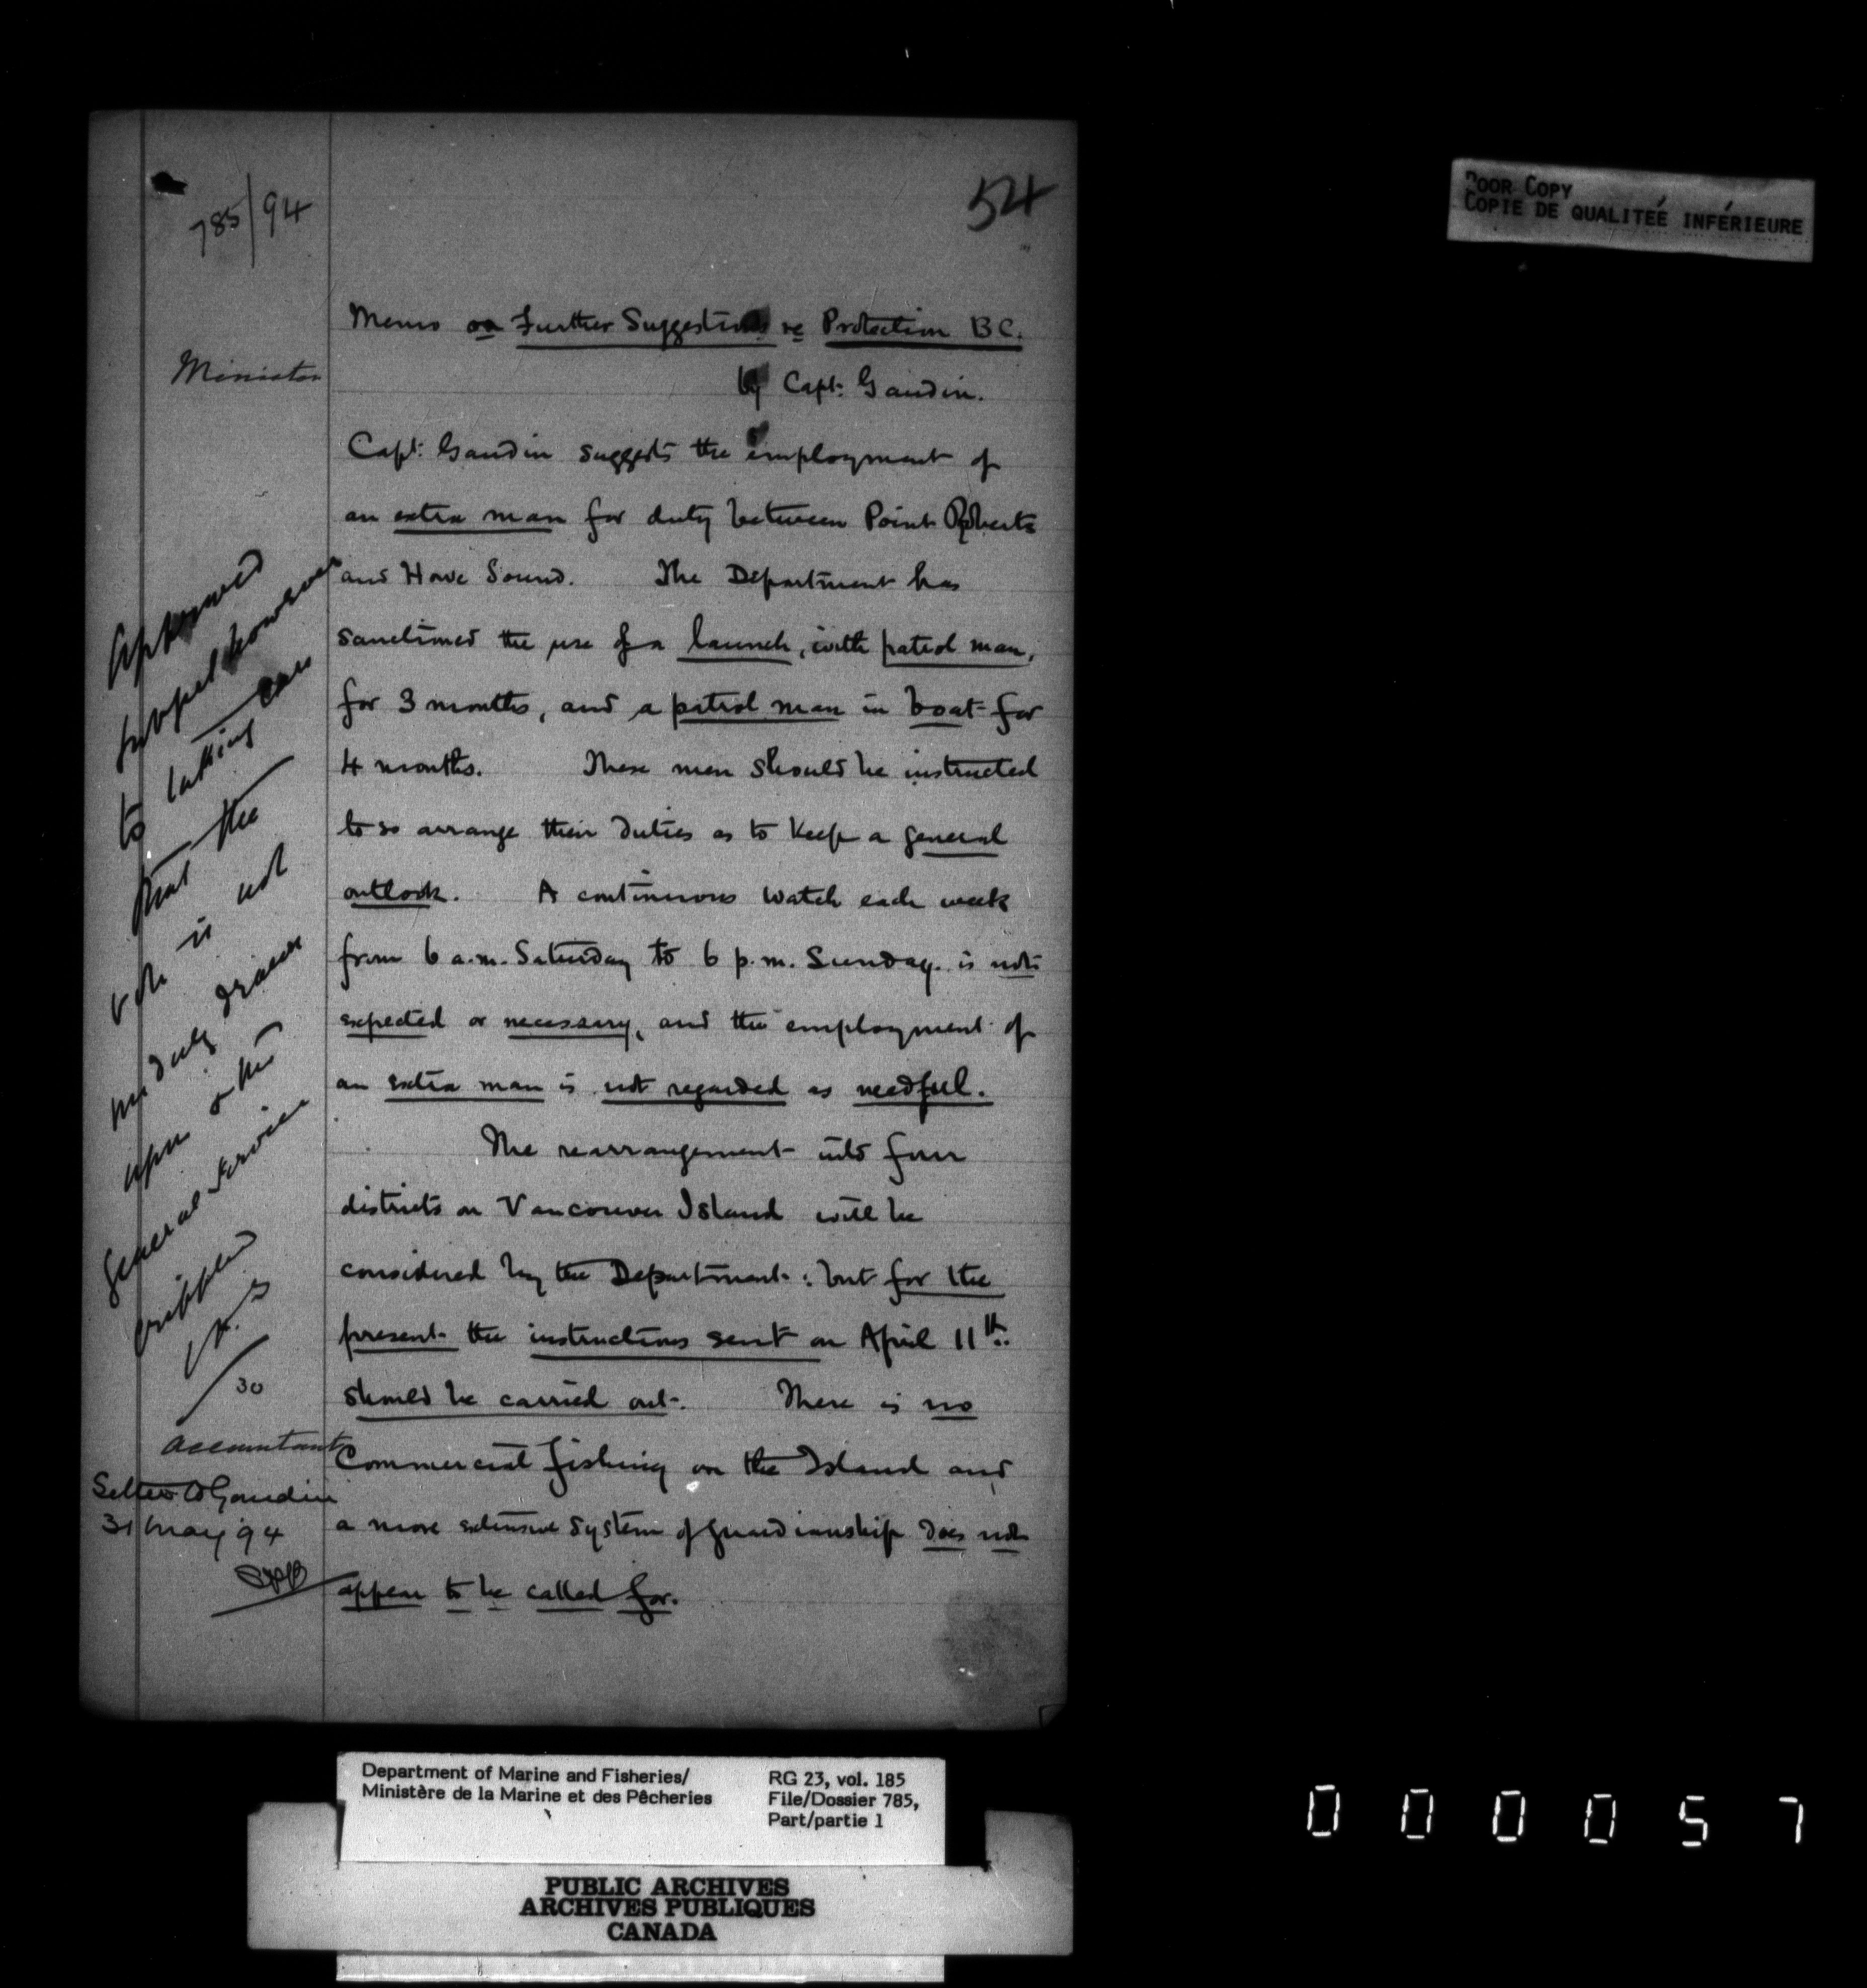 785/94
54
Memo on Further Suggestions re Protection B.C.
by Capt. Gaudin.
Minister
Capt. Gaudin suggests the employment of
an extra man for duty between Point Roberts
and Howe Sound. The Department has
sanctioned the use of a launch, with patrol man,
for 3 months, and a patrol man in boat for
4 months. These men should be instructed
to so arrange their duties as to keep a general
outlook. A continuous watch each week
from 6 a.m. Saturday to 6 p.m. Sunday is not
expected or necessary, and the employment of
an extra man is not regarded as needful.
The rearrangement into four
districts on Vancouver Island will be
considered by the Department: but for the
present the instructions sent on April 11th
should be carried out. There is no
Commercial fishing on the Island and
a more extensive system of guardianship does not
appear to be called for.
Approved
subject however
to taking care
that the
vote is not
unduly drawn
upon & the
General Service
crippled
30
Accountant
Letter to Gaudin
31 May '94
POOR COPY
COPIE DE QUALITEÉ INFÉRIEURE
Department of Marine and Fisheries/
Ministère de la Marine et des Pêcheries
RG 23, vol. 185
File/Dossier 785,
Part/partie 1
PUBLIC ARCHIVES
ARCHIVES PUBLIQUES
CANADA
000057